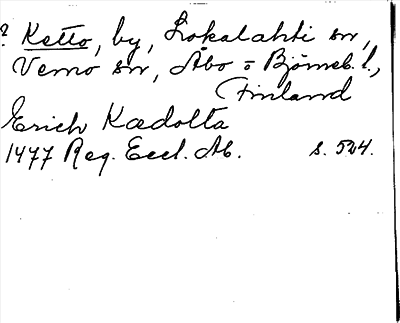 ? Ketto, by, Lokalahti sn,
Vemo sn, Åbo o Björneb. l.,
Finland
Erich Kædolta
1477 Reg. Eccl. Ab. s. 524.